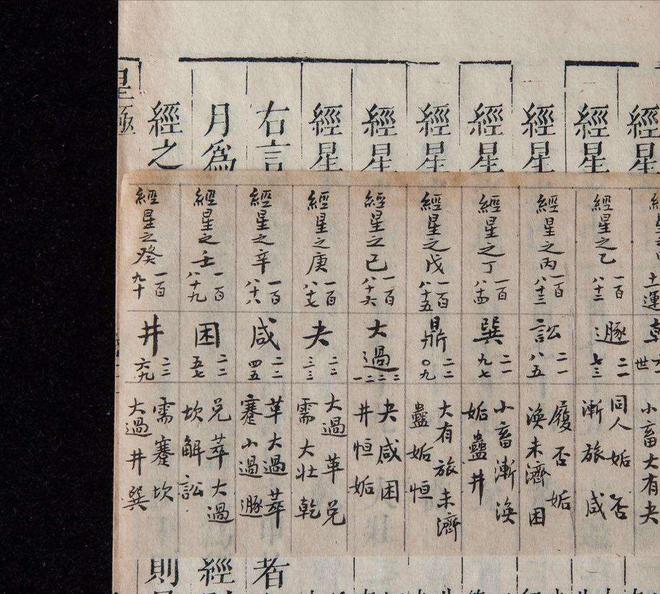 經星
經星
經星
經星
經星
經星
經星
右言
月爲
經之
皇極
土運
小畜大有夬
經星之乙
一百
八十二
遯
二一
七三
同人姤否
漸旅咸
經星之丙
一百
八十三
訟
二一
八五
履否姤
渙未濟困
經星之丁
一百
八十四
巽
二一
九七
小畜漸渙
姤蠱井
經星之戊
一百
八十五
鼎
二二
〇九
大有旅未濟
蠱姤恒
經星之己
一百
八十六
大過
二二
二一
夬咸困
井恒姤
經星之庚
一百
八十七
夬
二二
三三
大過革兌
需大壯乾
經星之辛
一百
八十八
咸
二二
四五
革大過萃
蹇小過遯
經星之壬
一百
八十九
困
二二
五七
兌萃大過
坎解訟
經星之癸
一百
九十
井
二二
六九
需蹇坎
大過井巽
者
經
則